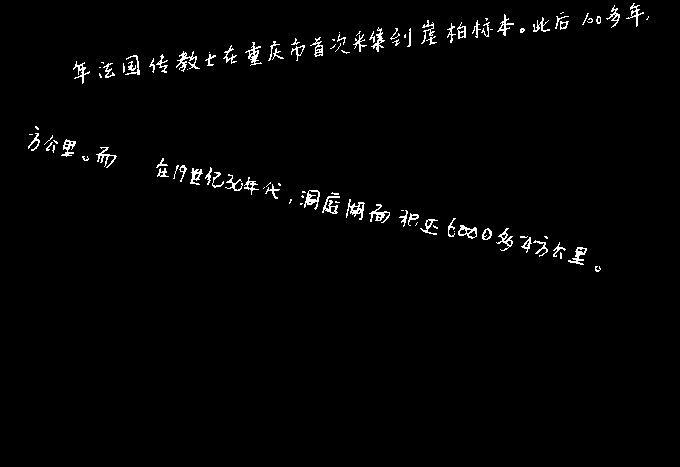 年法国传教士在重庆市首次采集到崖柏标本。此后100多年,
方公里。而
在19世纪30年代,洞庭湖面积达6000多平方公里。